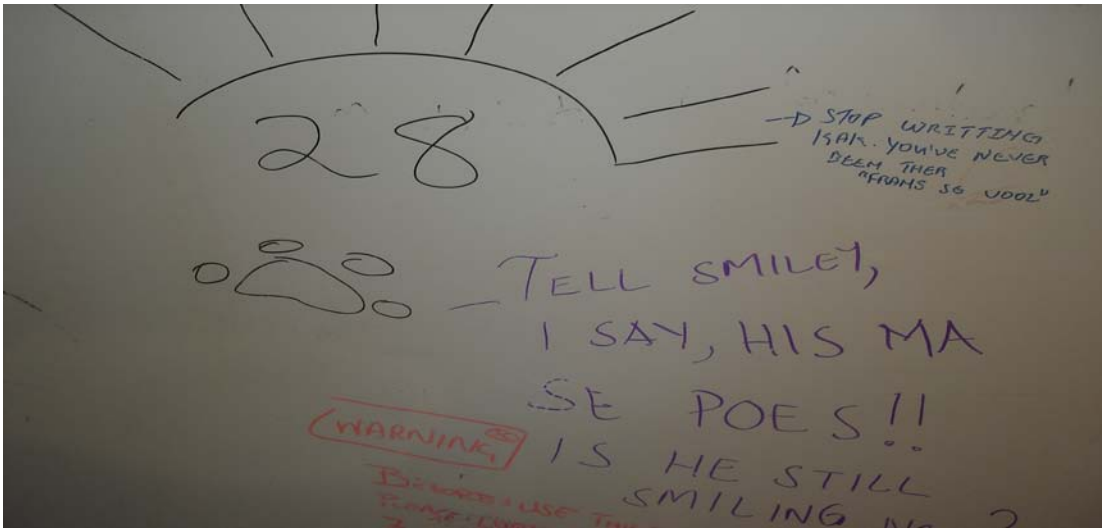 28
→ STOP WRITTING
KAK. YOU'VE NEVER
BEEM THER
"FRAMS SE VOOL"
– TELL SMILEY,
I SAY, HIS MA
SE POES!!
IS HE STILL
SMILING
WARNING
USE